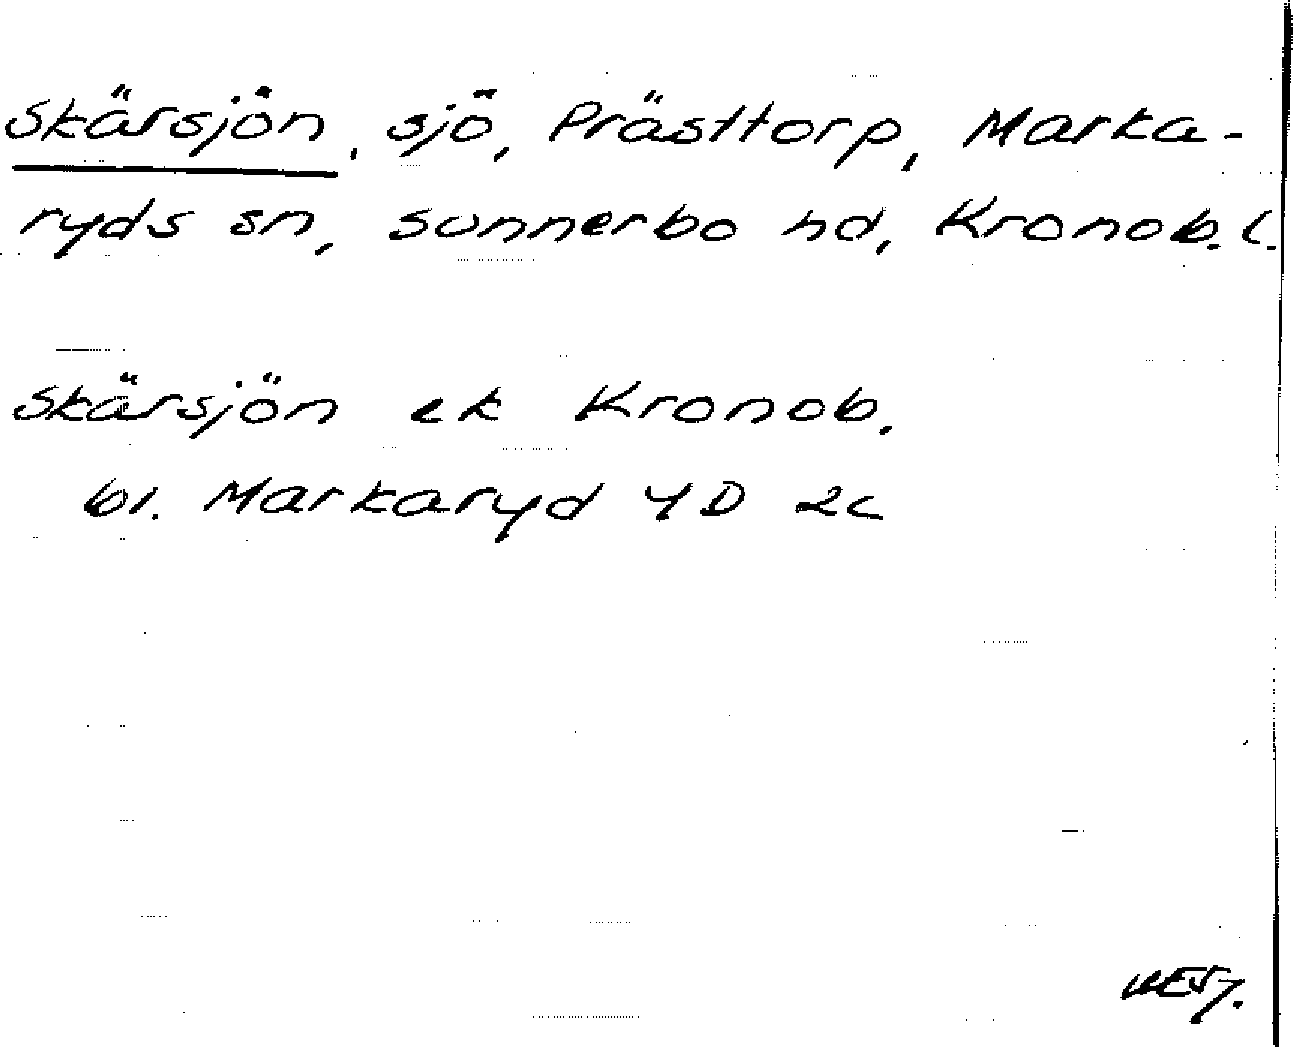 Skärsjön, sjö, Prästtorp, Marka-
ryds sn, Sunnerbo hd, Kronob. l.
Skärsjön ek Kronob.
bl. Markaryd 4D 2c